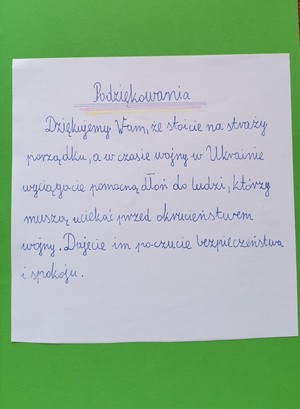 Podziękowania
Dziękujemy Wam, że stoicie na straży
porządku, a w czasie wojny w Ukrainie
wyciągacie pomocną dłoń do ludzi, którzy
muszą uciekać przed okrucieństwem
wojny. Dajecie im poczucie bezpieczeństwa
i spokoju.